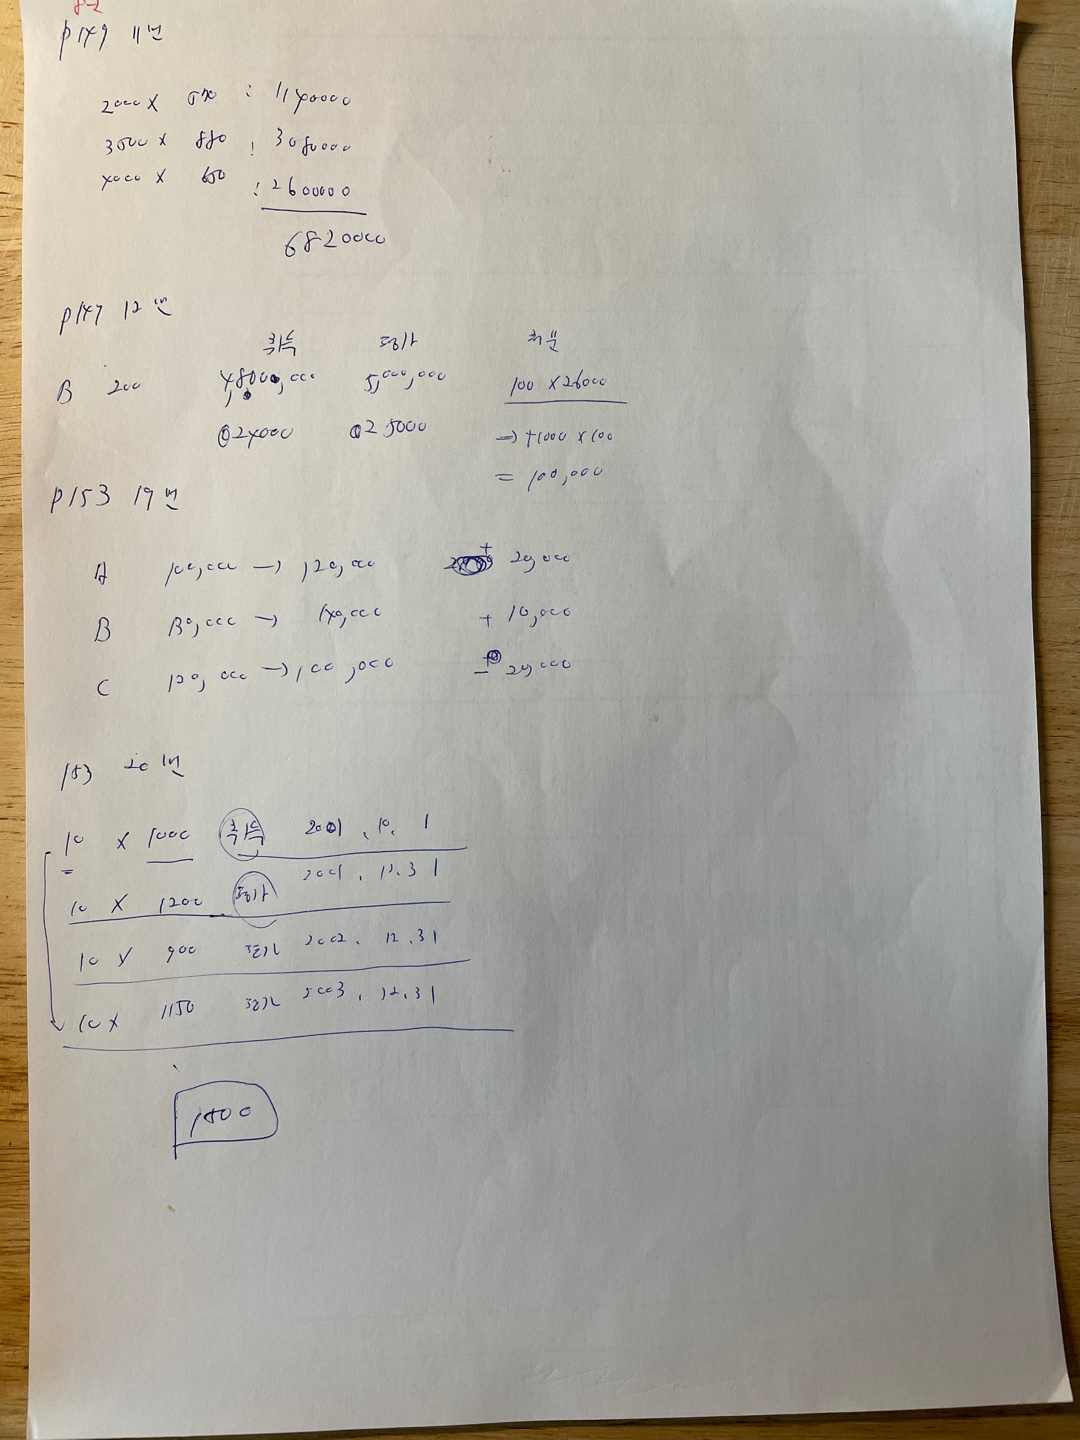 P149 11번
2000 X 570 : 1140000
3500 X 880 : 3080000
4000 X 650 : 2600000
6820000
P147 12번
취득 평가 처분
B 200 4,800,000 5,000,000 100 X 26000
@24000 @25000 → +1000 X 100
= 100,000
P153 19번
A 100,000 → 120,000 + 20,000
B 130,000 → 140,000 + 10,000
C 120,000 → 100,000 - 20,000
153 20번
10 X 1000 취득 2001. 10. 1
10 X 1200 평가 2001. 12. 31
10 X 900 평가 2002. 12. 31
10 X 1150 평가 2003. 12. 31
1500